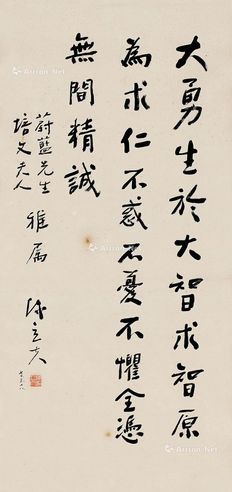 大勇生於大智求智原
為求仁不惑不憂不懼全憑
無間精誠
蔚藍先生
培文夫人
雅屬
陳立夫
Artron.Net